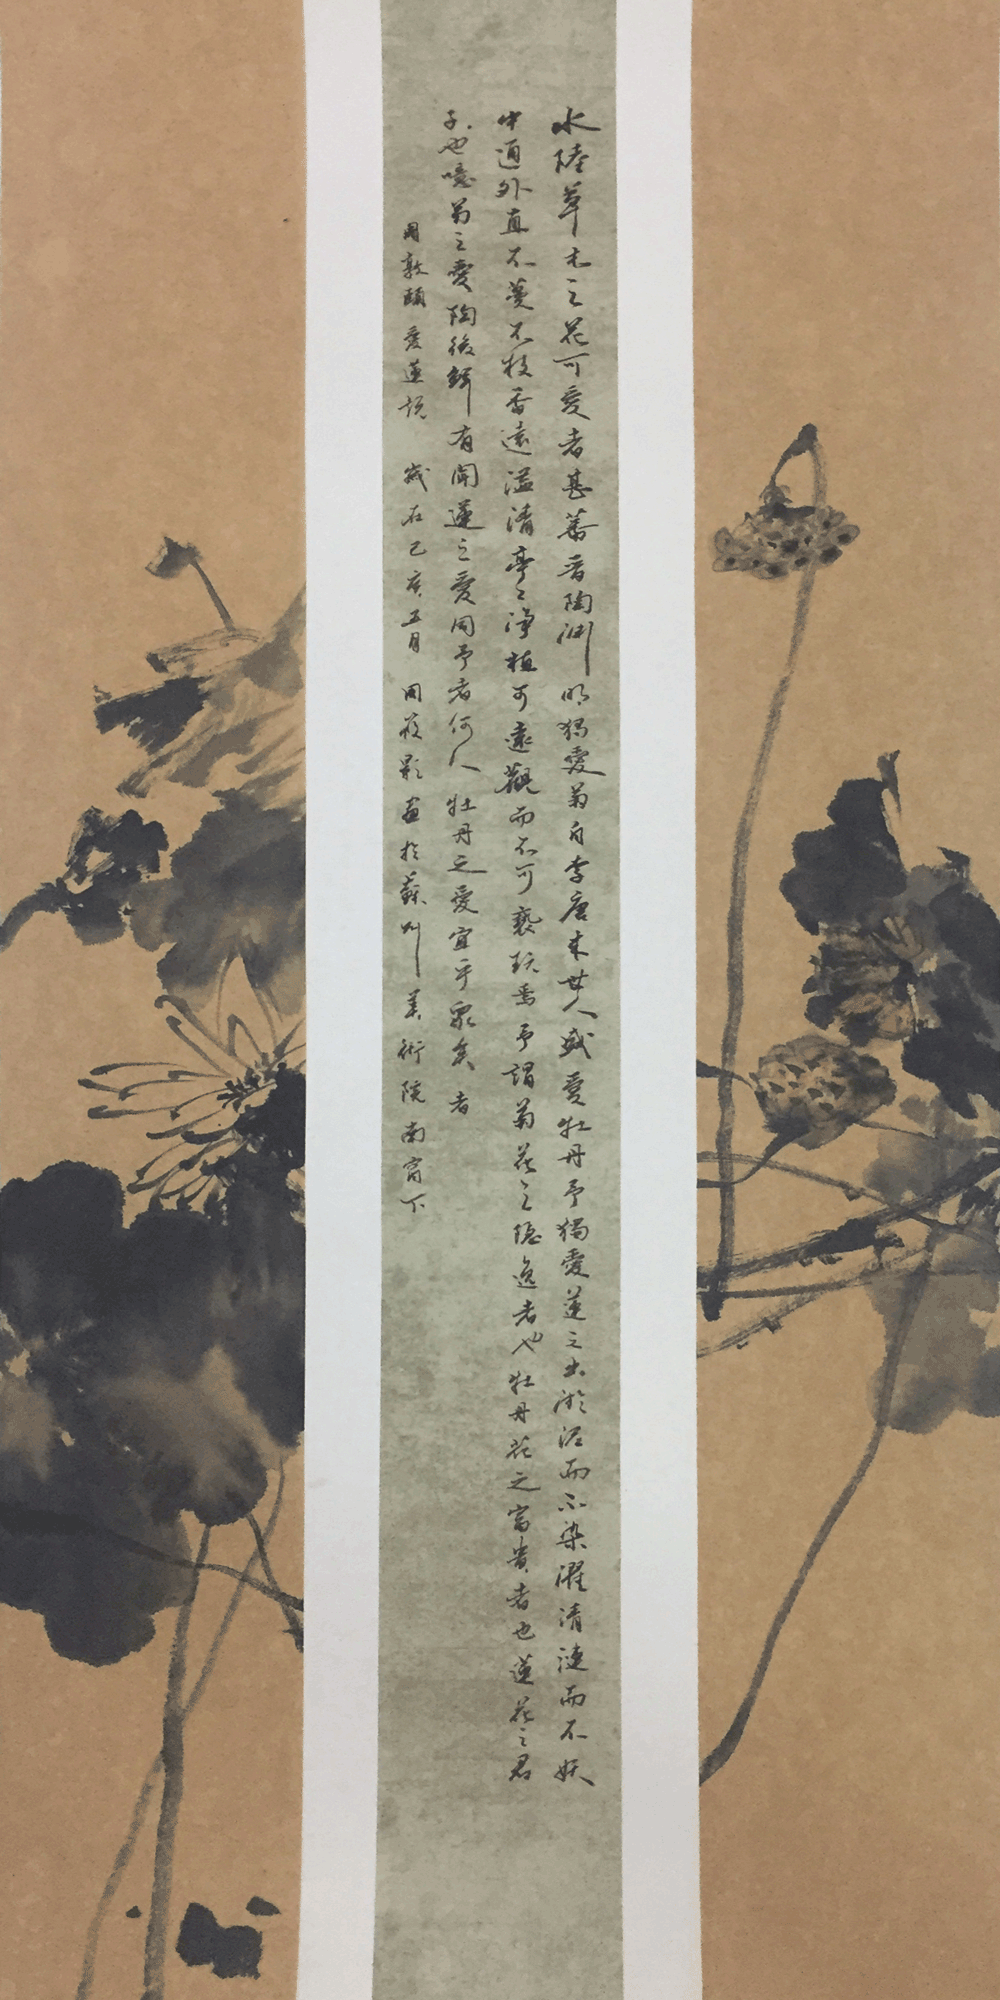 水陸草木之花可愛者甚蕃晋陶渊明獨愛菊自李唐来世人盛愛牡丹予獨愛蓮之出淤泥而不染濯清漣而不妖
中通外直不蔓不枝香遠溢清亭々净植可遠觀而不可褻玩焉予謂菊花之隐逸者也牡丹花之富貴者也蓮花之君
子也噫菊之愛陶後鮮有聞蓮之愛同予者何人牡丹之愛宜乎衆矣 者
周敦頤愛蓮說 歲在己亥五月 周影画於蘇州美術院南窗下